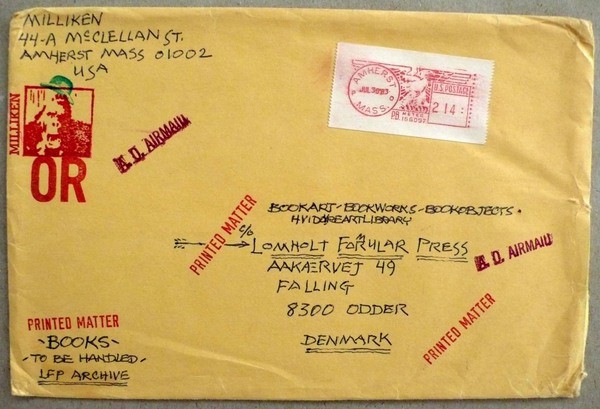 MILLIKEN
44-A McCLELLAN ST.
AMHERST MASS 01002
USA
MILLIKEN
OR
A. O. AIRMAIL
AMHERST
JUL 30
MASS.
U.S. POSTAGE
2 14
PB
METER
PRINTED MATTER
BOOKART-BOOKWORKS-BOOKOBJECTS.
HVIDOREARTLIBRARY
c/o
LOMHOLT FORMULAR PRESS
AAKÆRVEJ 49
FALLING
8300 ODDER
DENMARK
A. O. AIRMAIL
PRINTED MATTER
PRINTED MATTER
-BOOKS-
-TO BE HANDLED-
LFP ARCHIVE